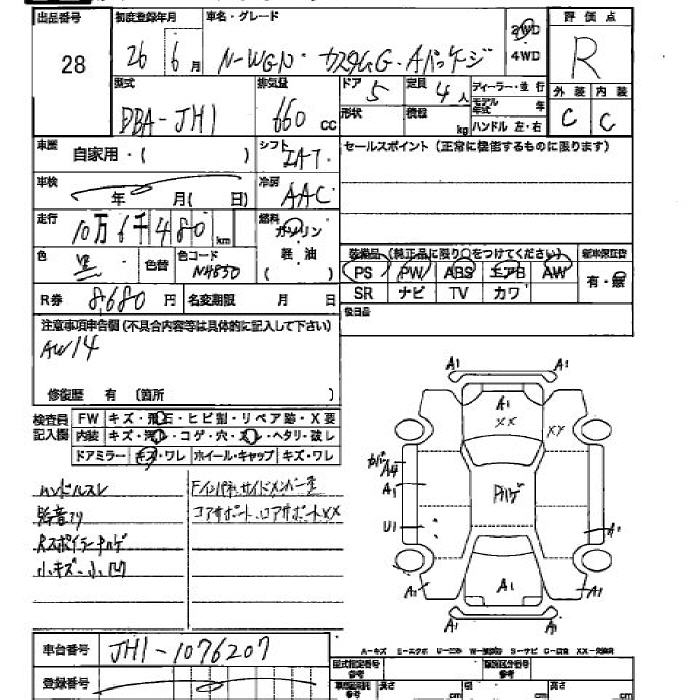 出品番号 初度登録年月 車名・グレード 2WD 評価点
28 26 6月 N-WGN カスタムG・Aパッケージ 4WD R
型式 排気量 ドア 5 定員 4人 ディーラー・並行 外装 内装
DBA-JH1 660 cc 形状 積載 kg モデル年式 年 C C
ハンドル 左・右
車歴 自家用・( ) シフト IAT セールスポイント(正常に機能するものに限ります)
車検 年 月( 日) 冷房 AAC
走行 10万6千480km 燃料 ガソリン
色 黒 色替 色コード NH850 軽油 ( )
装備品(純正品に限り○をつけてください) 新車保証書
PS PW ABS エアB AW 有・無
R券 8,680円 名変期限 月 日 SR ナビ TV カワ
注意事項申告欄(不具合内容等は具体的に記入して下さい)
AW14
修復歴 有 (箇所 )
検査員記入欄 FW キズ・飛石・ヒビ割・リペア跡・X要
内装 キズ・汚れ・コゲ・穴・スレ・ヘタリ・破レ
ドアミラー キズ・ワレ ホイール・キャップ キズ・ワレ
ハンドルスレ Fインパネ サイドメンバー歪
異音アリ コアサポート ロアサポートXX
Rスポイラーキハゲ
小キズ・小凹
A1 A1
A1
XX XX
カバー A4
A1 Pハゲ
U1 A1
A1 A1 A1
A1 A1
A-キズ E-エクボ U-凹 W-補修跡 S-サビ C-腐食 XX-交換済
車台番号 JH1-1076207
登録番号
型式指定番号 参考 類別区分番号 参考
長さ cm 高さ cm